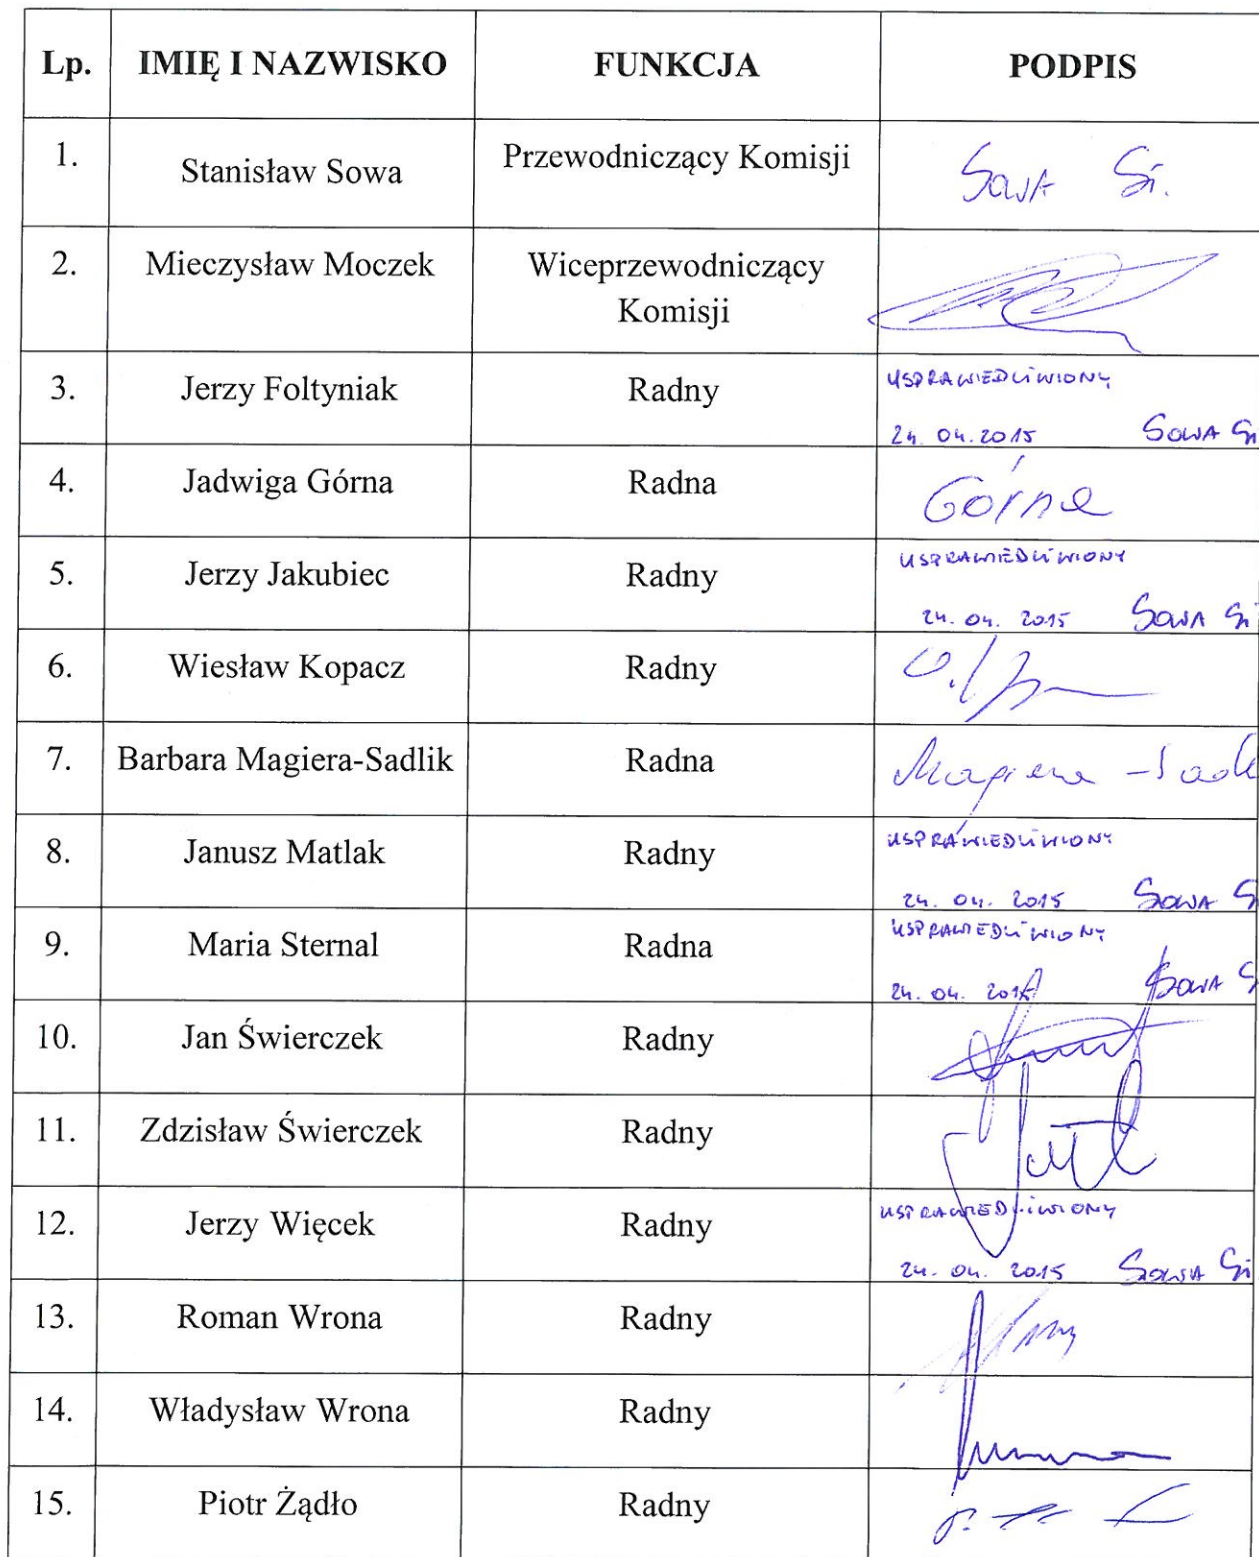 Lp. IMIĘ I NAZWISKO FUNKCJA PODPIS
1. Stanisław Sowa Przewodniczący Komisji Sowa St.
2. Mieczysław Moczek Wiceprzewodniczący
Komisji
3. Jerzy Foltyniak Radny USPRAWIEDLIWIONY
24.04.2015 SOWA St
4. Jadwiga Górna Radna Górna
5. Jerzy Jakubiec Radny USPRAWIEDLIWIONY
24.04.2015 SOWA St
6. Wiesław Kopacz Radny
7. Barbara Magiera-Sadlik Radna Magiera-Sadl
8. Janusz Matlak Radny USPRAWIEDLIWIONY
24.04.2015 SOWA S
9. Maria Sternal Radna USPRAWIEDLIWIONY
24.04.2015 SOWA S
10. Jan Świerczek Radny
11. Zdzisław Świerczek Radny
12. Jerzy Więcek Radny USPRAWIEDLIWIONY
24.04.2015 SOWA St
13. Roman Wrona Radny
14. Władysław Wrona Radny
15. Piotr Żądło Radny